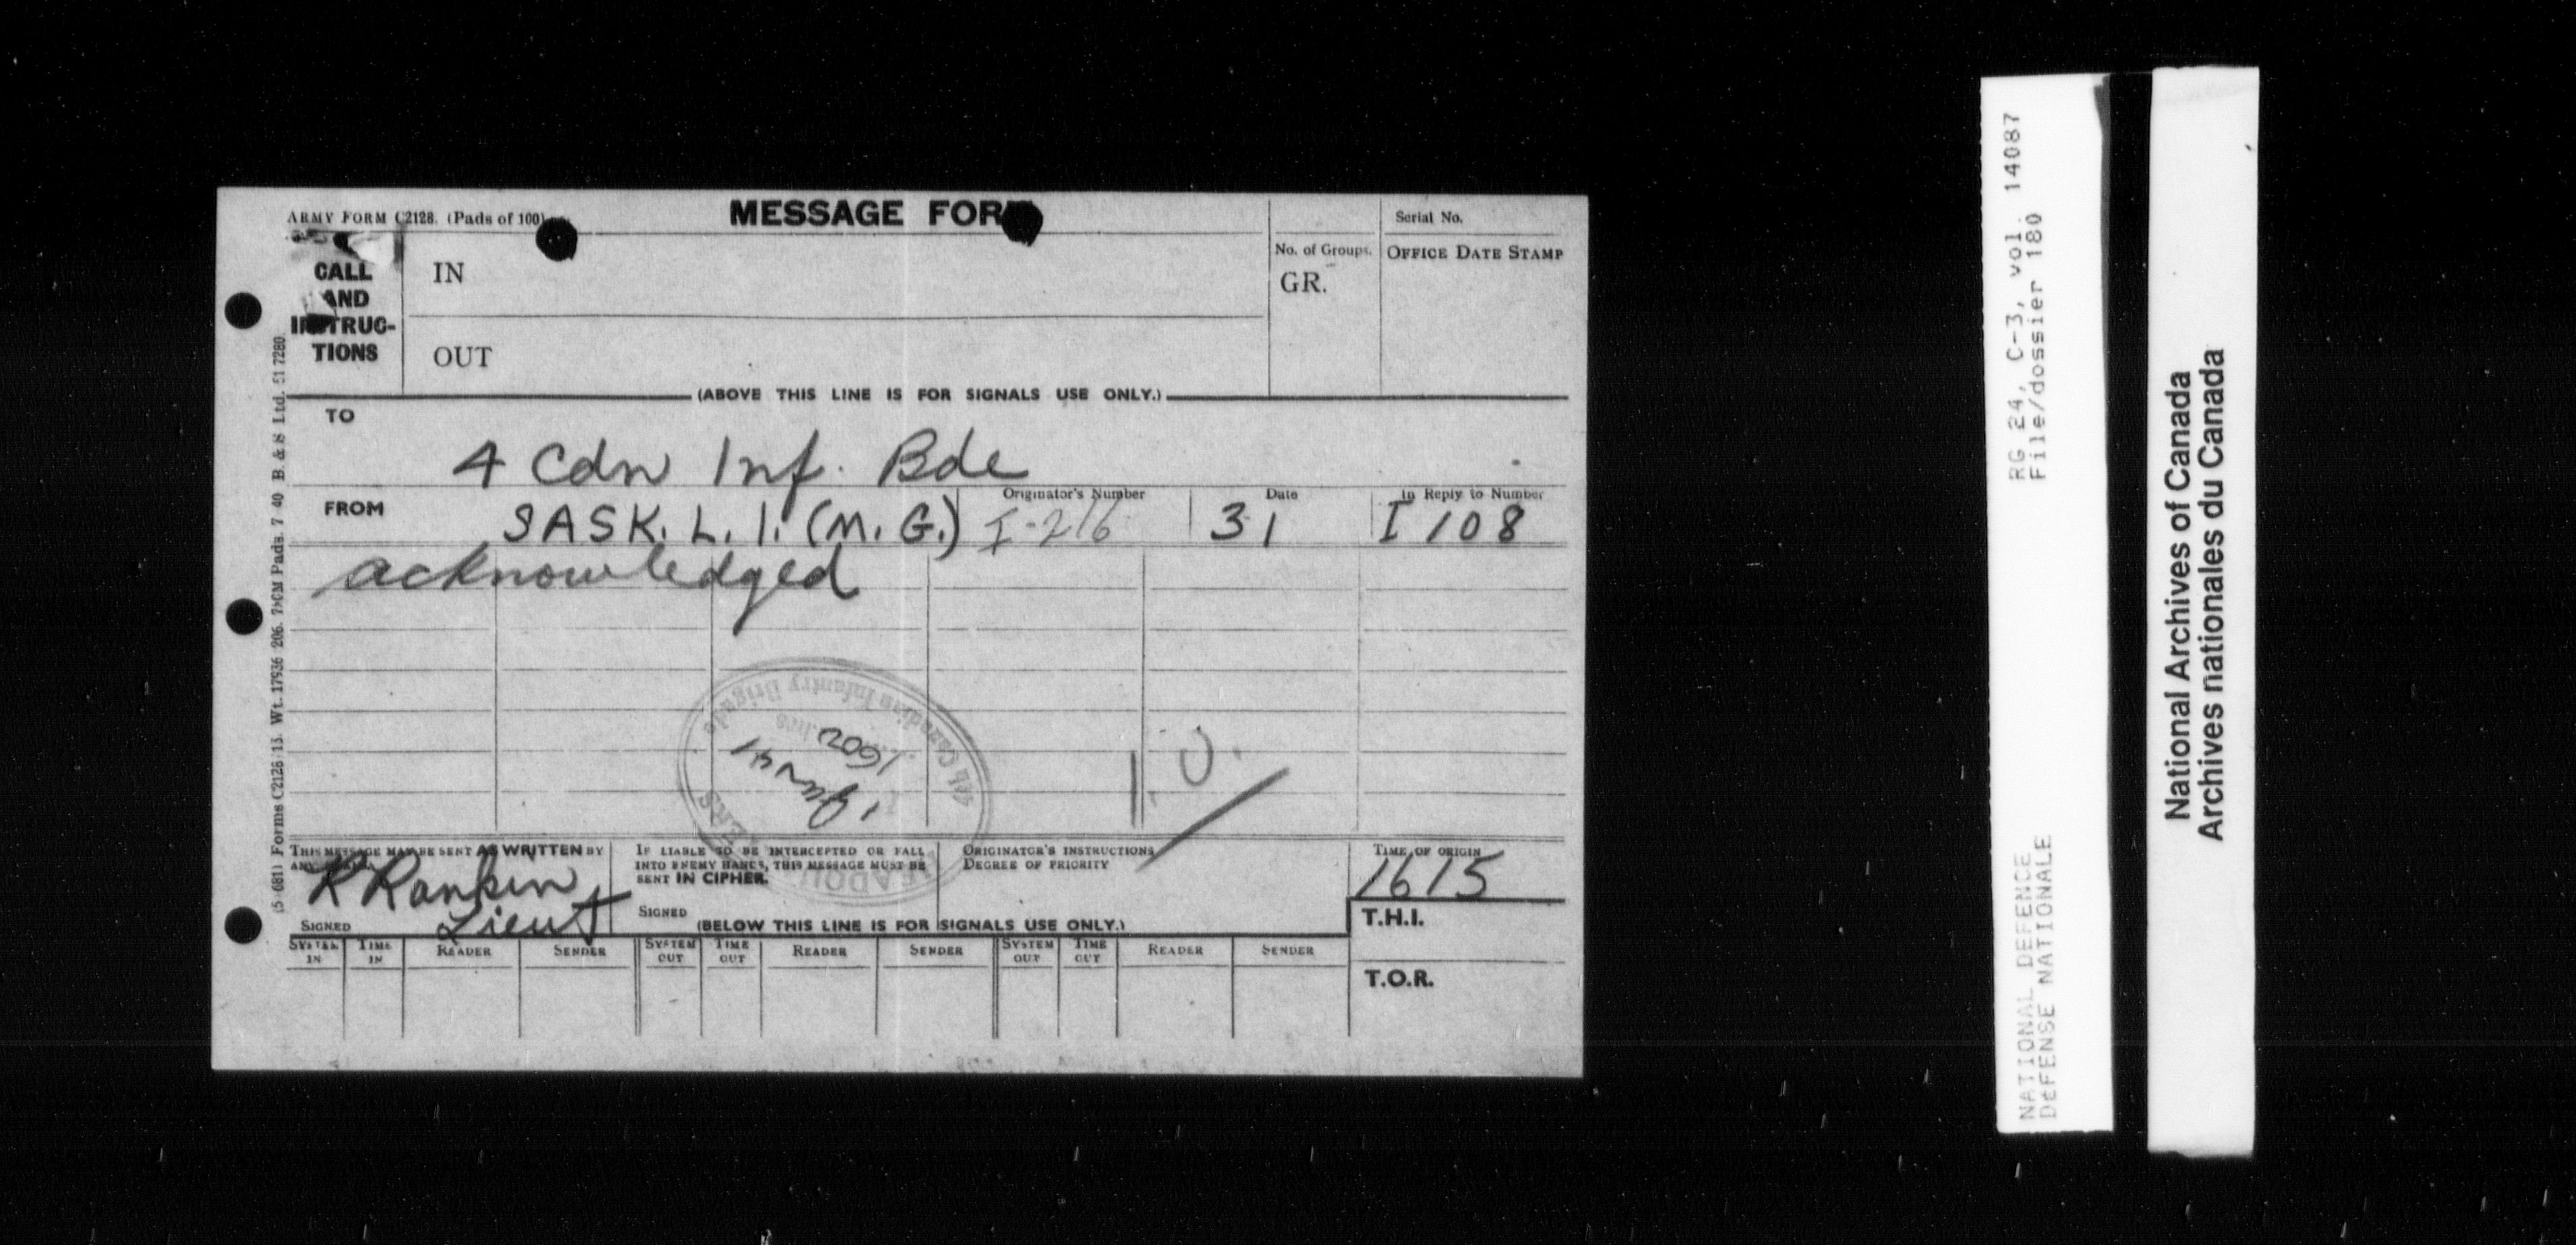 ARMY FORM C2128. (Pads of 100).
MESSAGE FORM
Serial No.
CALL
AND
INSTRUC-
TIONS
IN
No. of Groups.
GR.
OFFICE DATE STAMP
OUT
(ABOVE THIS LINE IS FOR SIGNALS USE ONLY.)
TO
4 Cdn Inf. Bde
FROM
SASK. L. I. (M. G.)
Originator's Number
I-216
Date
31
In Reply to Number
I 108
acknowledged
4th Canadian Infantry Brigade
1 Jan 41
1600
I.O.
THIS MESSAGE MAY BE SENT AS WRITTEN BY
ANY
R Rankin
Lieut
SIGNED
IF LIABLE TO BE INTERCEPTED OR FALL
INTO ENEMY HANDS, THIS MESSAGE MUST BE
SENT IN CIPHER.
SIGNED
ORIGINATOR'S INSTRUCTIONS
DEGREE OF PRIORITY
TIME OF ORIGIN
1615
T.H.I.
T.O.R.
(BELOW THIS LINE IS FOR SIGNALS USE ONLY.)
SYSTEM IN
TIME IN
READER
SENDER
SYSTEM OUT
TIME OUT
READER
SENDER
SYSTEM OUT
TIME OUT
READER
SENDER
(5 681) Forms C2126/13. Wt. 17936 206. 7 40 B. & S Ltd. 51 7280
RG 24, C-3, vol. 14087
File/dossier 180
NATIONAL DEFENCE
DéFENSE NATIONALE
National Archives of Canada
Archives nationales du Canada